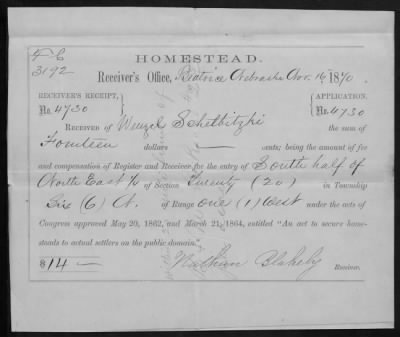 F C
3192
HOMESTEAD.
Receiver's Office, Beatrice Nebraska Nov. 16 1870
RECEIVER'S RECEIPT, APPLICATION,
No. 4730 No. 4730
RECEIVED OF Wenzel Schetbitzki the sum of
Fourteen dollars — cents; being the amount of fee
and compensation of Register and Receiver for the entry of South half of
North East ¼ of Section Twenty (20) in Township
Six (6) N. of Range one (1) West under the acts of
Congress approved May 20, 1862, and March 21, 1864, entitled "An act to secure home-
steads to actual settlers on the public domain."
$14 — Nathan Blakely Receiver.